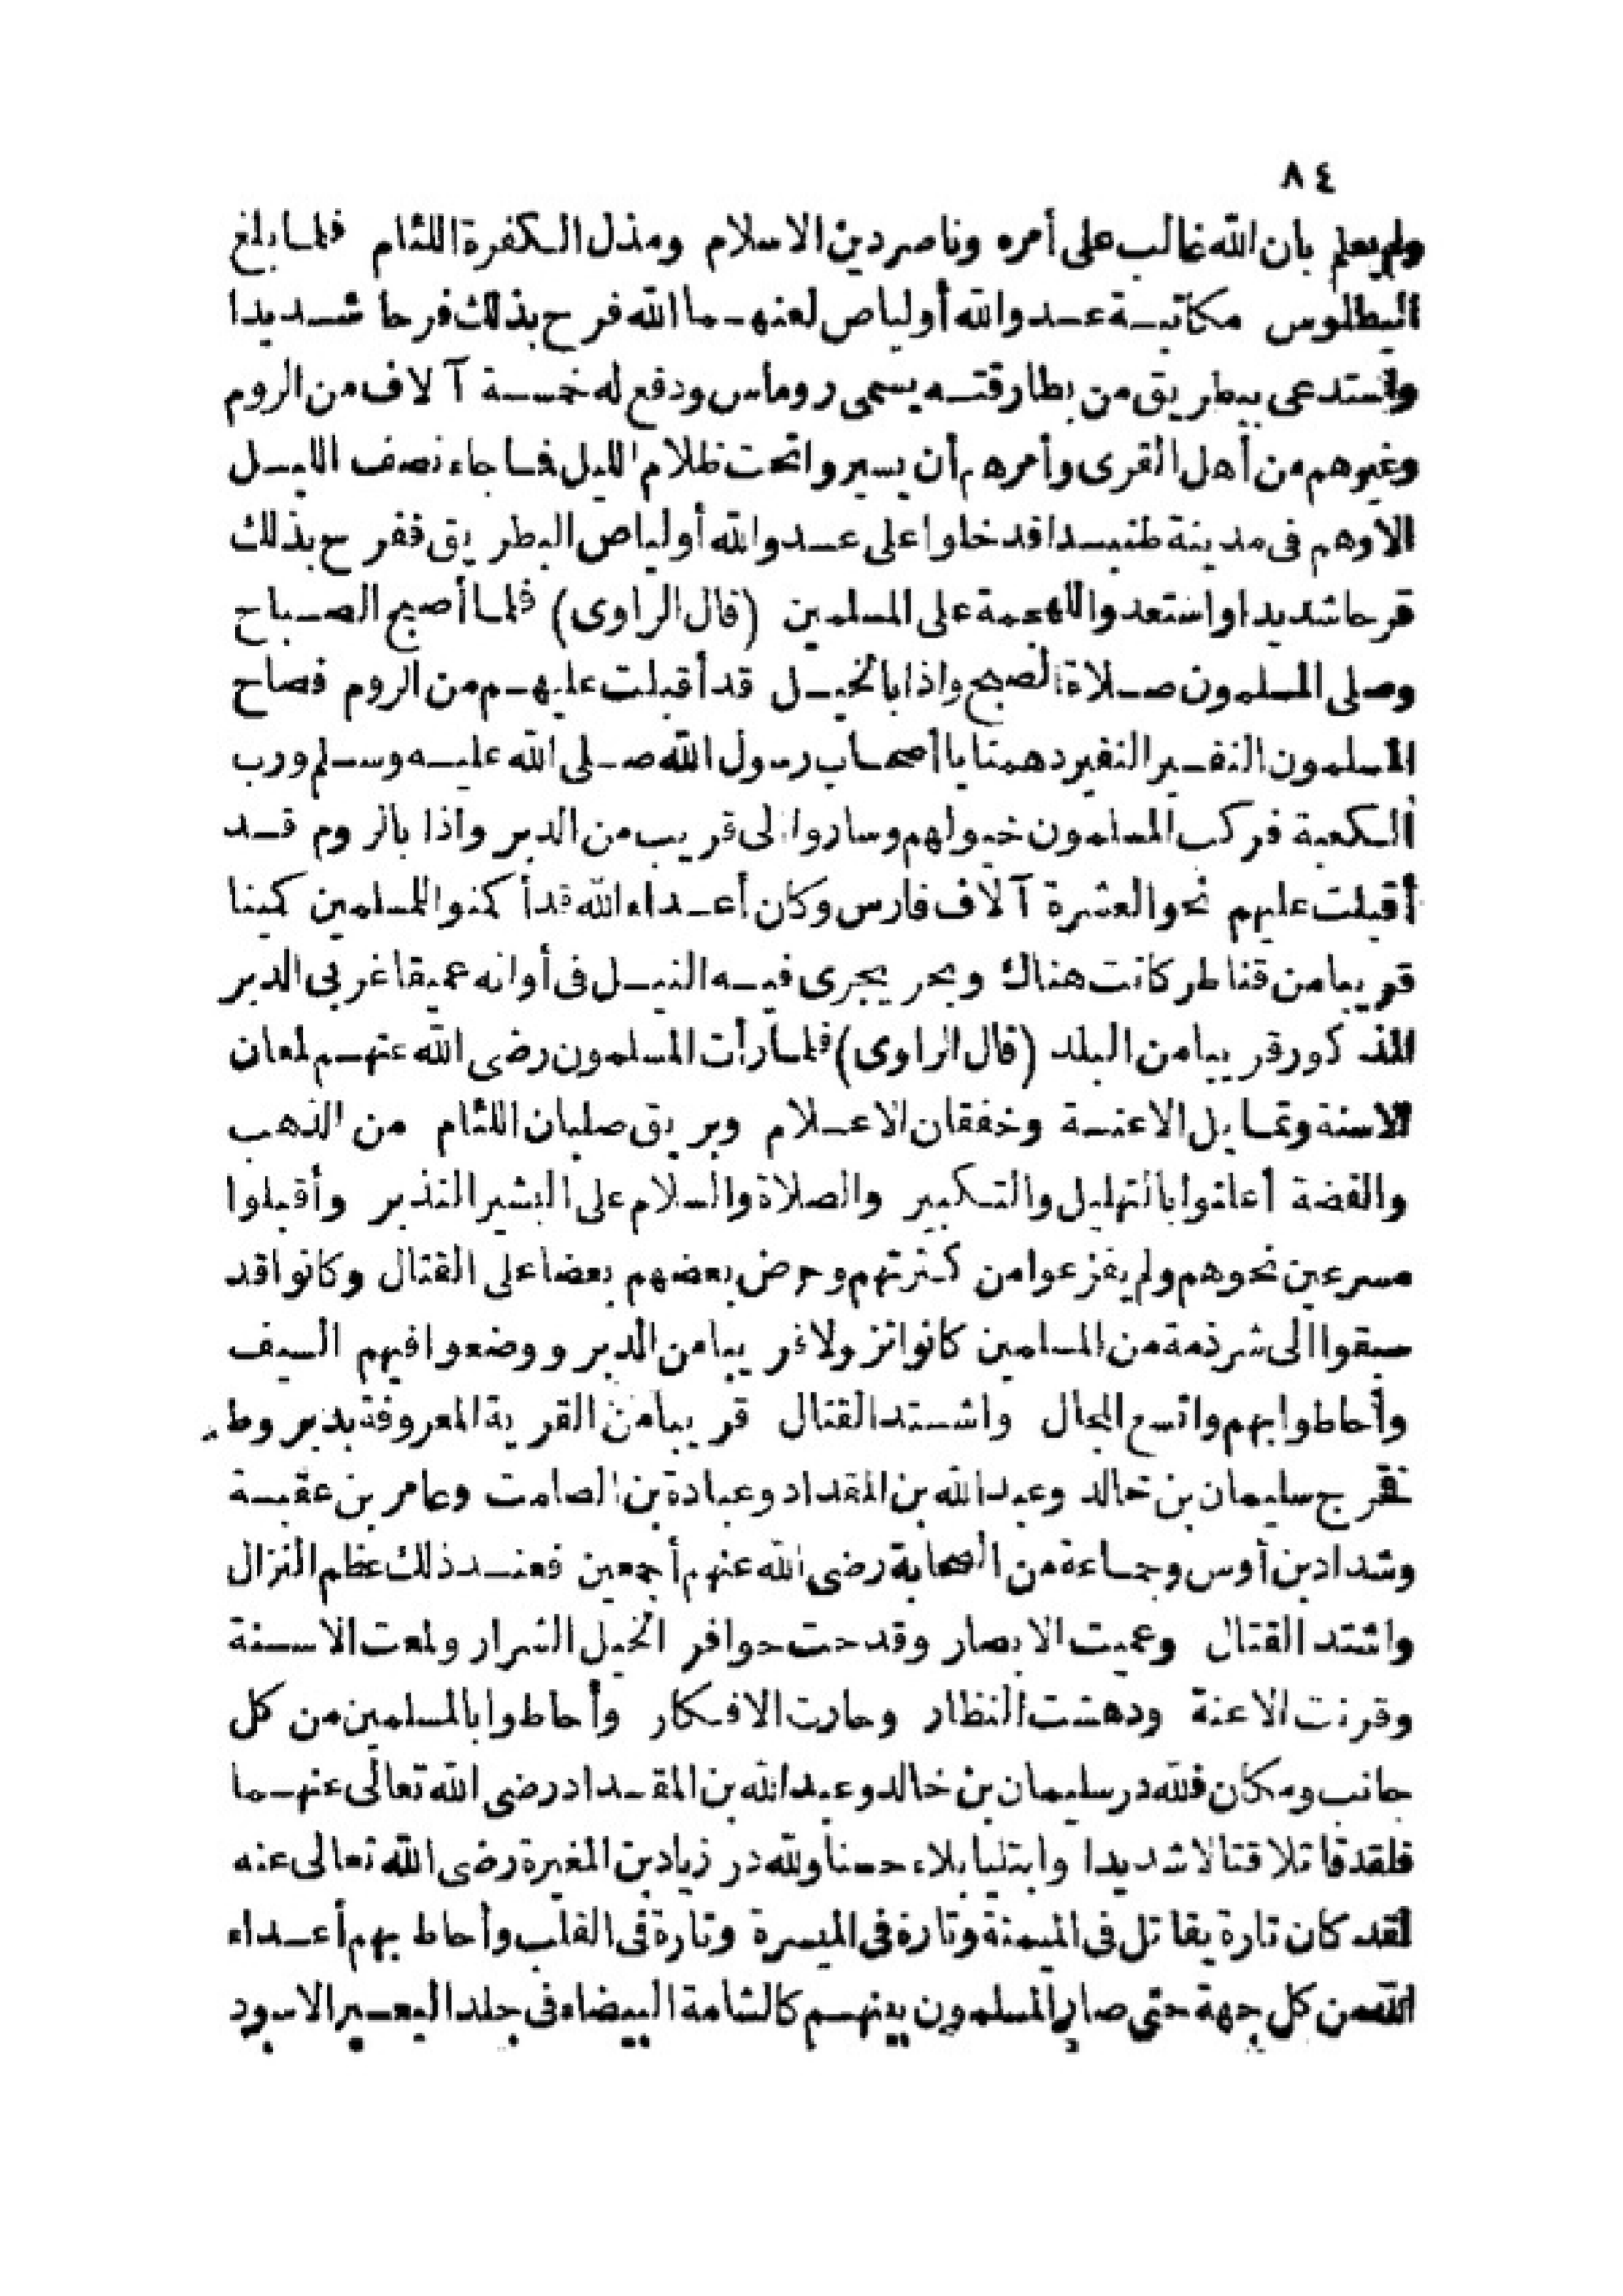 ٨٤
ولم يعلم بان الله غالب على أمره وناصر دين الاسلام ومذل الكفرة اللئام فلما بلغ
البطلوس مكاتبة عدو الله أولياص لعنهما الله فرح بذلك فرحا شديدا
واستدعى ببطريق من بطارقته يسمى روماس ودفع له خمسة آلاف من الروم
وغيرهم من أهل القرى وأمرهم أن يسيروا تحت ظلام الليل فما جاء نصف الليل
الا وهم فى مدينة طنبدا قد دخلوا على عدو الله أولياص البطريق ففرح بذلك
فرحا شديدا واستعدوا للهجمة على المسلمين (قال الراوى) فلما أصبح الصباح
وصلى المسلمون صلاة الصبح واذا بالخيل قد أقبلت عليهم من الروم فصاح
المسلمون النفير النفير دهمنا يا أصحاب رسول الله صلى الله عليه وسلم ورب
الكعبة فركب المسلمون خيولهم وساروا الى قريب من الدير واذا بالروم قد
أقبلت عليهم نحو العشرة آلاف فارس وكان أعداء الله قد أكمنوا للمسلمين كمينا
قريبا من قناطر كانت هناك وبحر يجرى فيه النيل فى أوانه عميقا غربى الدير
المذكور قريبا من البلد (قال الراوى) فلما رأت المسلمون رضى الله عنهم لمعان
الاسنة وتمايل الاعنة وخفقان الاعلام وبريق صلبان اللئام من الذهب
والفضة أعلنوا بالتهليل والتكبير والصلاة والسلام على البشير النذير وأقبلوا
مسرعين نحوهم ولم يفزعوا من كثرتهم وحرض بعضهم بعضا على القتال وكانوا قد
سبقوا الى شرذمة من المسلمين كانوا نزولا قريبا من الدير ووضعوا فيهم السيف
وأحاطوا بهم واتسع المجال واشتد القتال قريبا من القرية المعروفة بديروط
فخرج سليمان بن خالد وعبد الله بن المقداد وعبادة بن الصامت وعامر بن عقبة
وشداد بن أوس وجماعة من الصحابة رضى الله عنهم أجمعين فعند ذلك عظم النزال
واشتد القتال وعميت الابصار وقدحت حوافر الخيل الشرار ولمعت الاسنة
وقرنت الاعنة ودهشت النظار وحارت الافكار وأحاطوا بالمسلمين من كل
جانب ومكان فلله در سليمان بن خالد وعبد الله بن المقداد رضى الله تعالى عنهما
فلقد قاتلا قتالا شديدا وابتليا بلاء حسنا ولله در زياد بن المغيرة رضى الله تعالى عنه
لقد كان تارة يقاتل فى الميمنة وتارة فى الميسرة وتارة فى القلب وأحاط بهم أعداء
الله من كل جهة حتى صار المسلمون بينهم كالشامة البيضاء فى جلد البعير الاسود